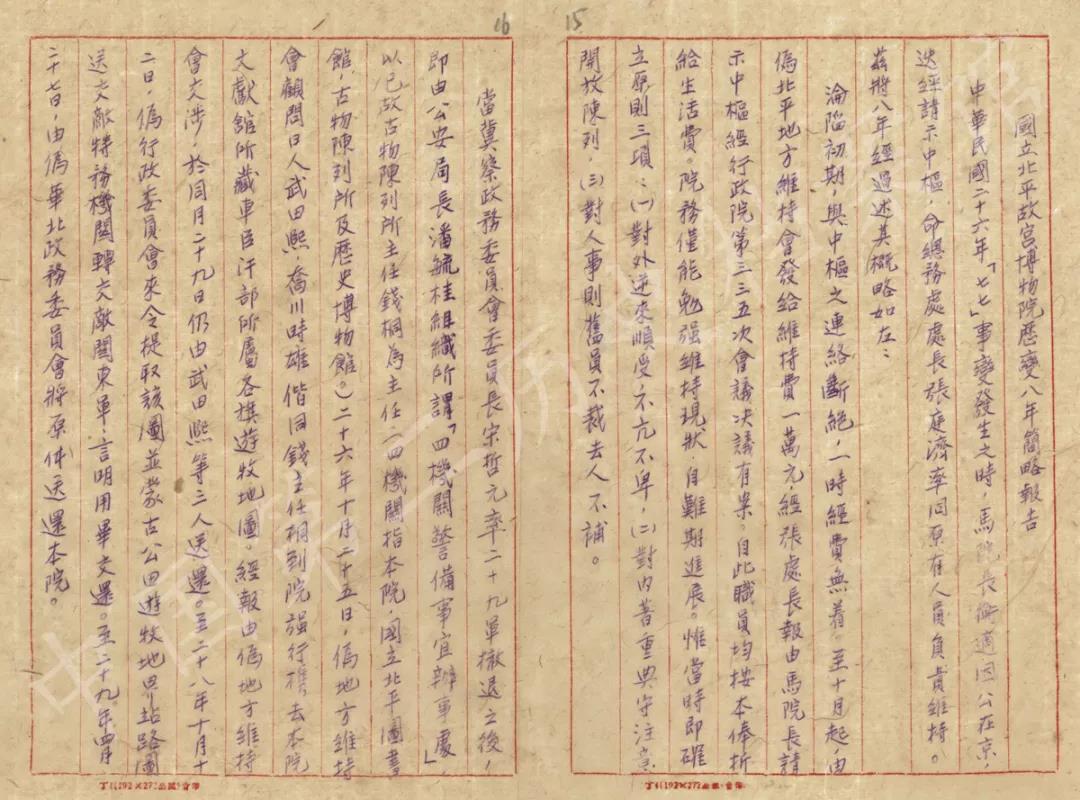 15
國立北平故宮博物院歷變八年簡略報告
中華民國二十六年「七七」事變發生之時，馬院長衡適因公在京，
迭經請示中樞，命總務處處長張庭濟率同原有人員負責維持。
茲將八年經過述其概略如左：
淪陷初期，與中樞之連絡斷絕，一時經費無着。至十月起，由
偽北平地方維持會發給維持費一萬元，經張處長報由馬院長請
示中樞經行政院第三三五次會議決議有案。自此職員均按本俸折
給生活費。院務僅能勉强維持現狀，自難期進展。惟當時即確
立原則三項：(一)對外逆來順受，不亢不卑，(二)對內著重典守注意
開放陳列，(三)對人事則舊員不裁去人不補。
16
當冀察政務委員會委員長宋哲元率二十九軍撤退之後，
即由公安局長潘毓桂組織所謂「四機關警備事宜辦事處」
以已故古物陳列所主任錢桐為主任（四機關指本院國立北平圖書
館，古物陳列所及歷史博物館。）二十六年十月二十五日，偽地方維持
會顧問日人武田熙，喬川時雄偕同錢主任桐到院强行攜去本院
文獻館所藏車臣汗部所屬各旗遊牧地圖。經報由偽地方維持
會交涉，於同月二十九日仍由武田熙等三人送還。至二十八年十月十
二日，偽行政委員會來令提取該圖並蒙古公田遊牧地界站路圖
送交敵特務機關轉交敵關東軍；言明用畢交還。至二十九年四月
二十七日，由偽華北政務委員會將原件送還本院。